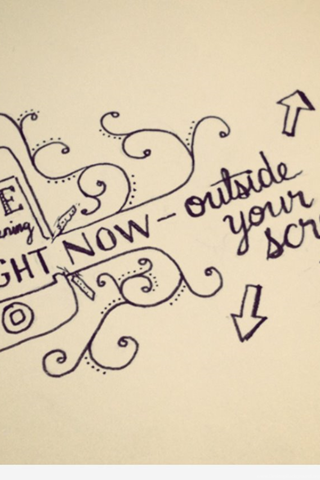 E
ening
GHT NOW - outside
your
scr